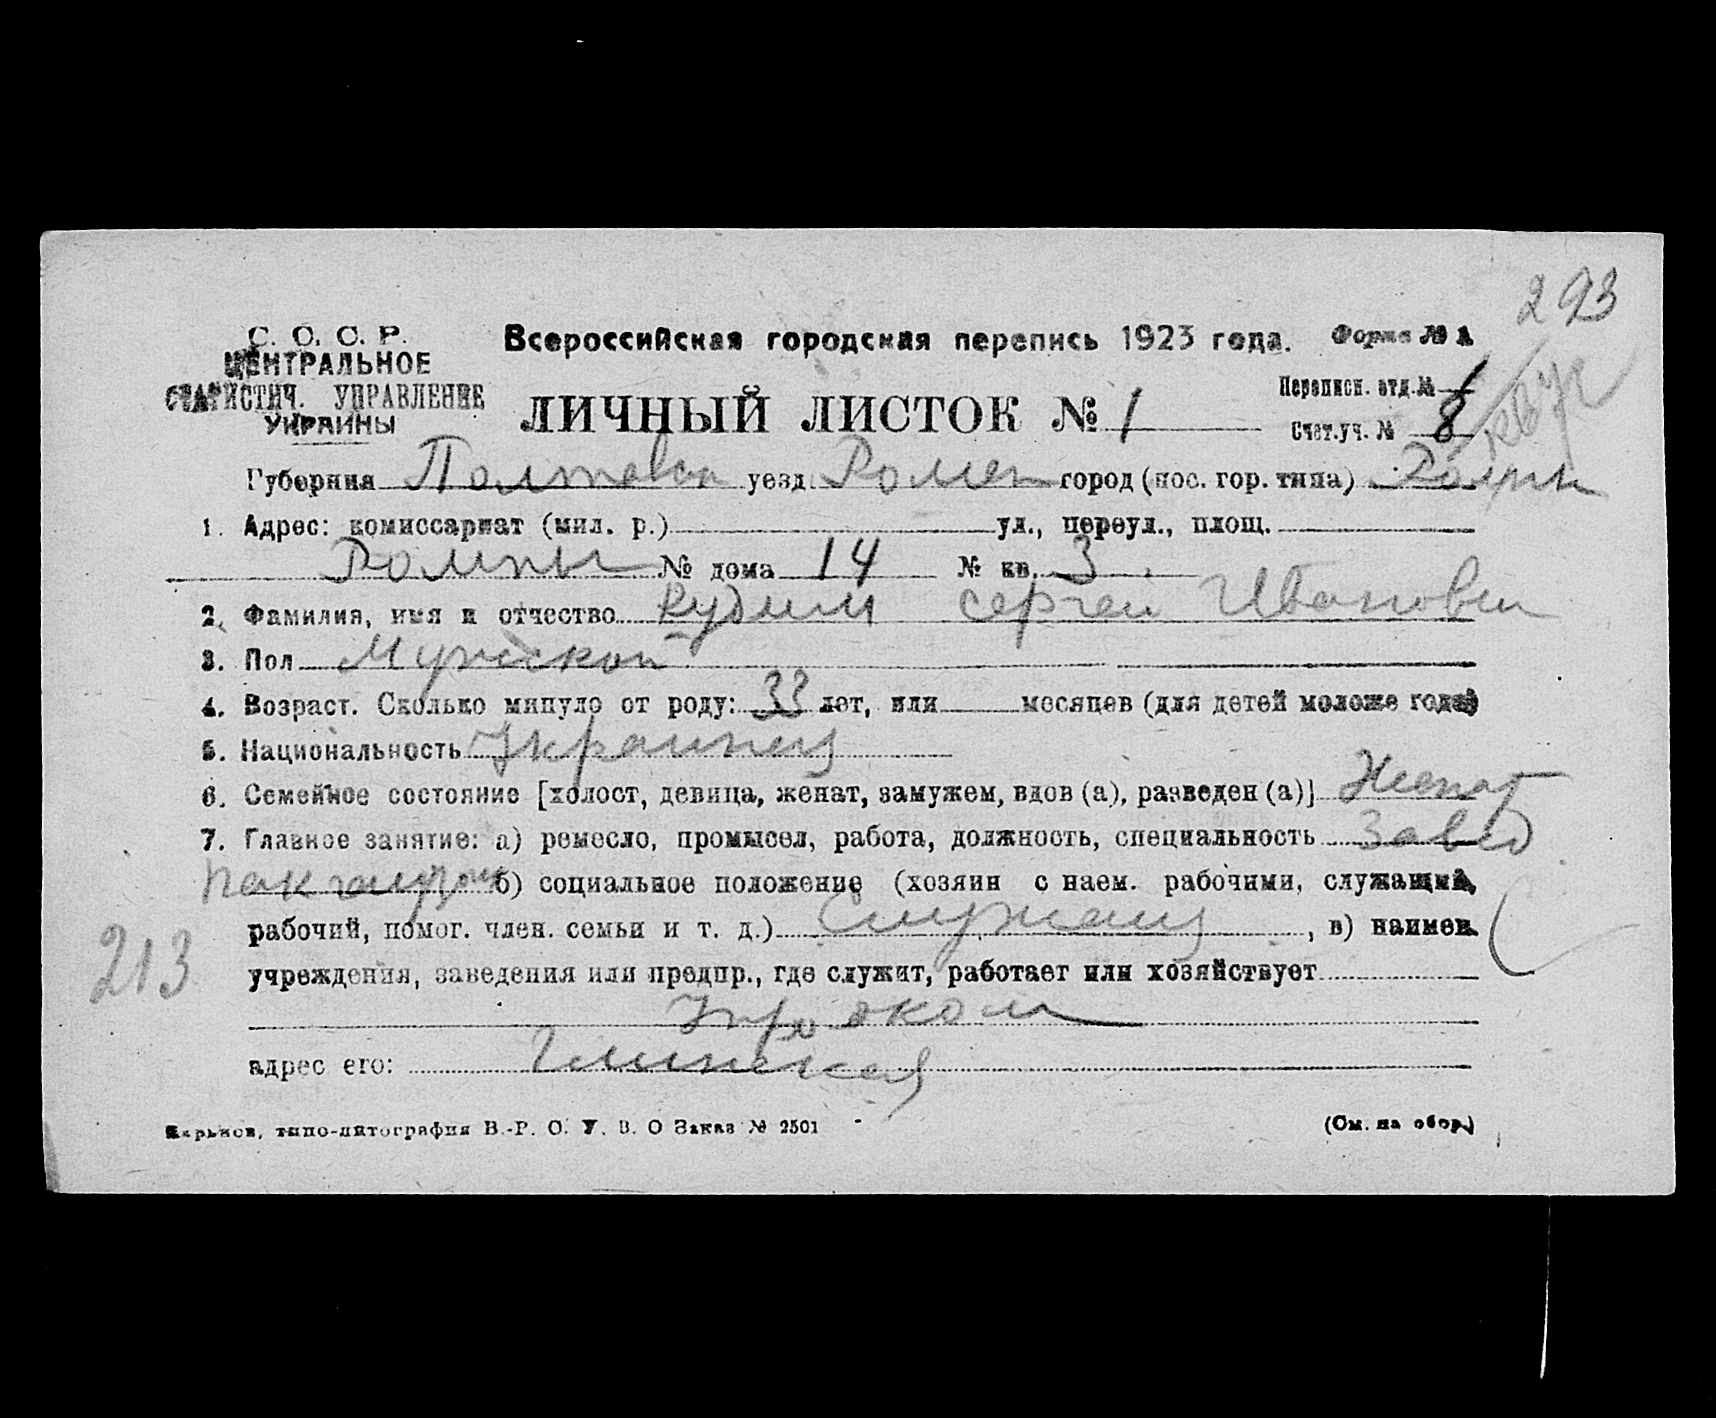 293
С. О. С. Р.
ЦЕНТРАЛЬНОЕ
СТАТИСТИЧ. УПРАВЛЕНИЕ
УКРАИНЫ
Всероссийская городская перепись 1923 года. Форма № 1
ЛИЧНЫЙ ЛИСТОК № 1
Переписн. отд. № 1
Счет. уч. № 8
Губерния Полтавск уезд Ромен город (пос. гор. типа) Ромны
1. Адрес: комиссариат (мил. р.) ул., переул., площ.
Ромны № дома 14 № кв. 3
2. Фамилия, имя и отчество Кудим Сергей Иванович
3. Пол Мужской
4. Возраст. Сколько минуло от роду: 33 лет, или месяцев (для детей моложе года)
5. Национальность Украинец
6. Семейное состояние [холост, девица, женат, замужем, вдов (а), разведен (а)] Женат
7. Главное занятие: а) ремесло, промысел, работа, должность, специальность Завед
пакгаузом б) социальное положение (хозяин с наем. рабочими, служащий,
рабочий, помог. член. семьи и т. д.) Служащ , в) наимен.
213
учреждения, заведения или предпр., где служит, работает или хозяйствует
адрес его: Глинская
Харьков, типо-литография В.-Р. О. У. В. О Заказ № 2501
(См. на обор.)